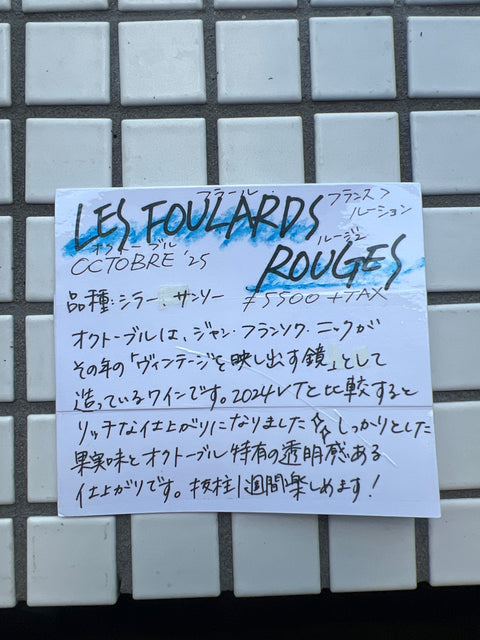 フラール・
LES FOULARDS
フランス>
ルーション
オクトーブル
OCTOBRE '25
ルージュ
ROUGES
品種:シラー サンソー
¥5500+TAX
オクトーブルは、ジャン・フランソワ・ニックが
その年の「ヴィンテージを映し出す鏡」として
造っているワインです。2024VTと比較すると
リッチな仕上がりになりました☆しっかりとした
果実味とオクトーブル特有の透明感ある
仕上がりです。抜栓1週間楽しめます!